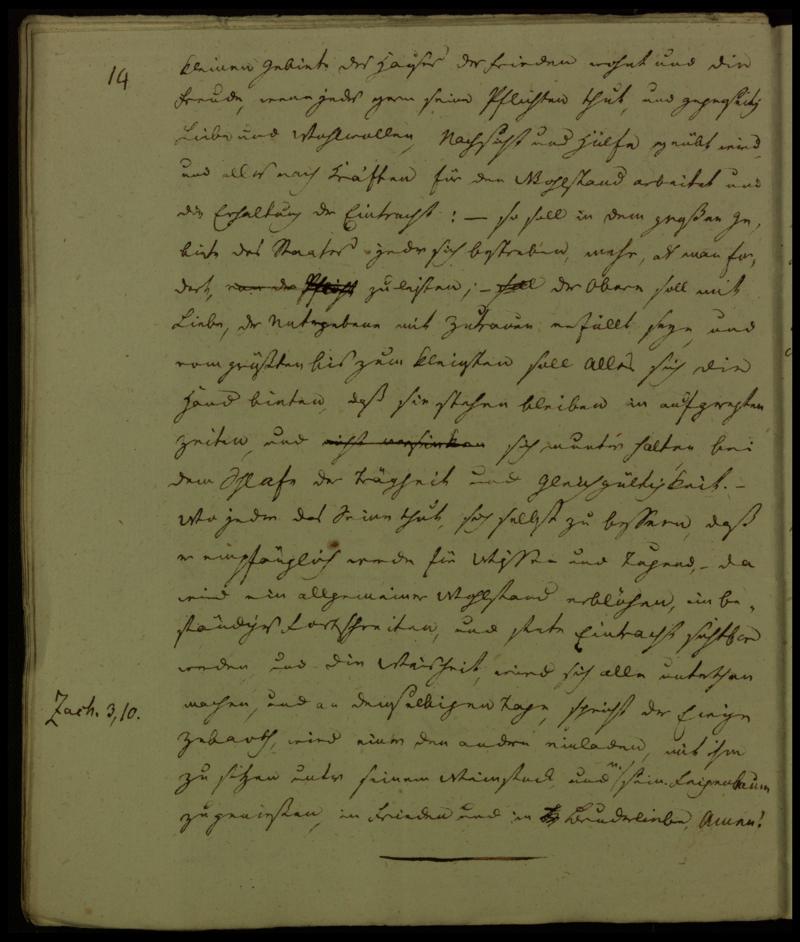 14
kleinen Gebiete des Hauses der Frieden wohnt und die
Freude, wenn jeder gern seine Pflichten thut, und gegenseitig
Liebe und Wohlwollen, Nachsicht und Hülfe geübt wird,
und alles nach Kräften für den Wohlstand arbeitet und
die Erhaltung der Eintracht: — so soll in dem großen Ge,
biete des Staates jeder sich bestreben, mehr, als man for,
dert, von der Pflicht zu leisten; — soll der Obere soll mit
Liebe, der Untergebene mit Zutrauen erfüllt seyn, und
vom größten bis zum kleinsten soll Alles sich die
Hand bieten, daß sie stehen bleiben in aufgeregten
Zeiten, und nicht versinken sich munter halten bei
dem Schlafe der Trägheit und Gleichgültigkeit. –
Wo jeder das Seine thut, sich selbst zu bessern, daß
er empfänglich werde für Wissen und Tugend, – da
wird ein allgemeiner Wohlstand erblühen, ein be,
ständiges Fortschreiten, und stete Eintracht sichtbar
werden, und die Weisheit, wird sich alle unterthan
Zach. 3,10.
machen, und an demselbigen Tage, spricht der Ewige
Zebaoth, wird einer den andern einladen, mit ihm
zu sitzen unter seinem Weinstock, und sein. Feigenbaum
zu genießen, in Frieden und in Bruderliebe, Amen!